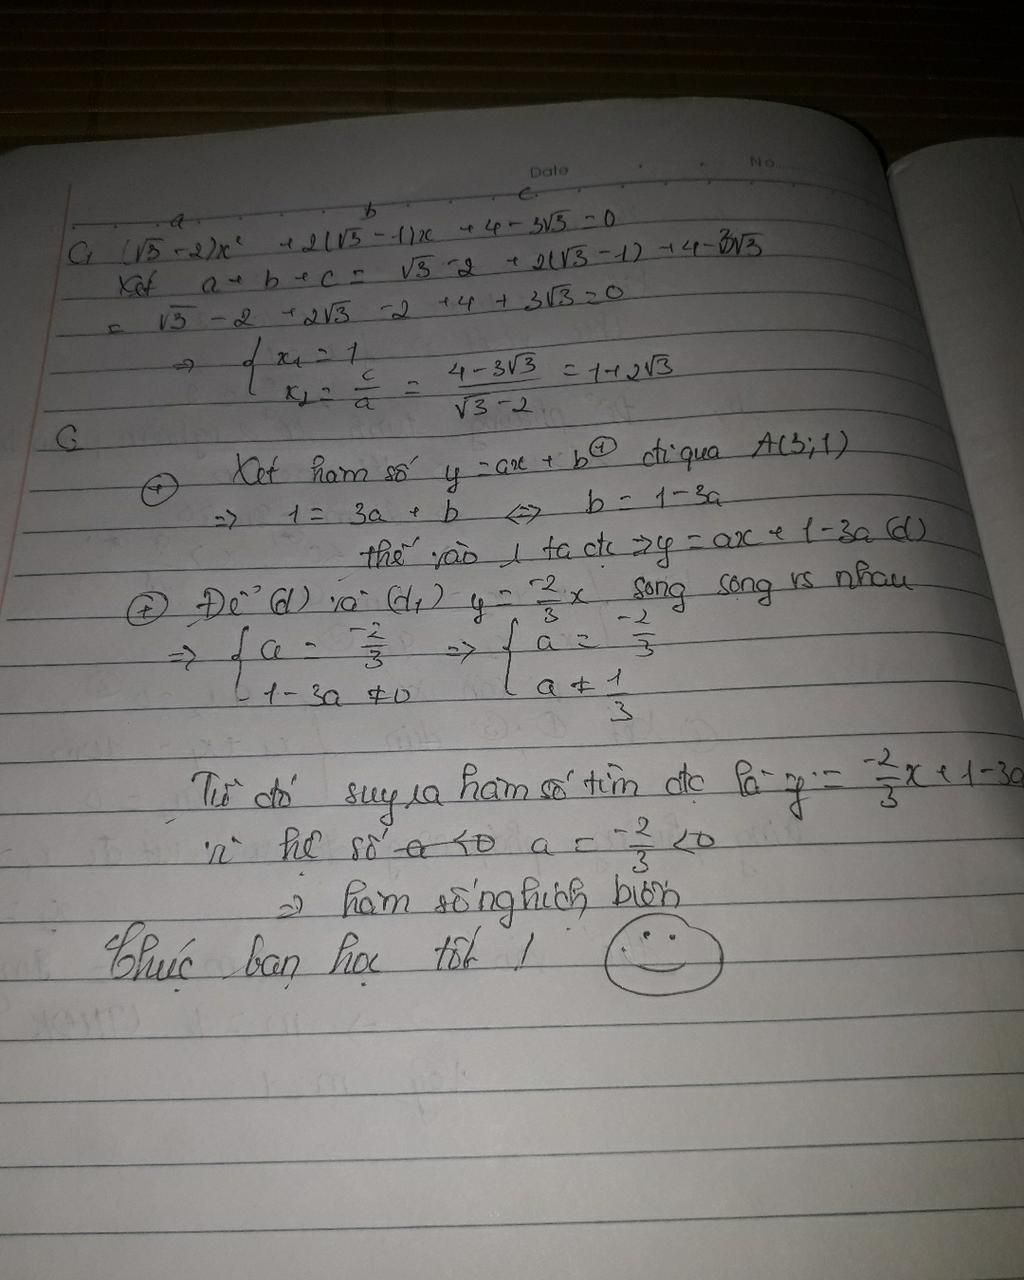 Date No
a b c
C1 (√3 - 2)x² + 2(√3 - 1)x + 4 - 3√3 = 0
Xét a + b + c = √3 - 2 + 2(√3 - 1) + 4 - 3√3
= √3 - 2 + 2√3 - 2 + 4 + 3√3 = 0
⇒ { x₁ = 1
x₂ = c/a = (4 - 3√3)/(√3 - 2) = 1 + 2√3
C
⊕ Xét hàm số y = ax + b ⊕ đi qua A(3;1)
⇒ 1 = 3a + b ⇔ b = 1 - 3a
thế vào 1 ta đc ⇒ y = ax + 1 - 3a (d)
⊕ Để (d) và (d₁) y = -2/3 x song song vs nhau
⇒ { a = -2/3 ⇒ { a = -2/3
1 - 3a ≠ 0 a ≠ 1/3
Từ đó suy ra hàm số tìm đc là y = -2/3 x + 1 - 3a
vì hệ số a < 0 a = -2/3 < 0
⇒ hàm số nghịch biến
Chúc bạn học tốt !